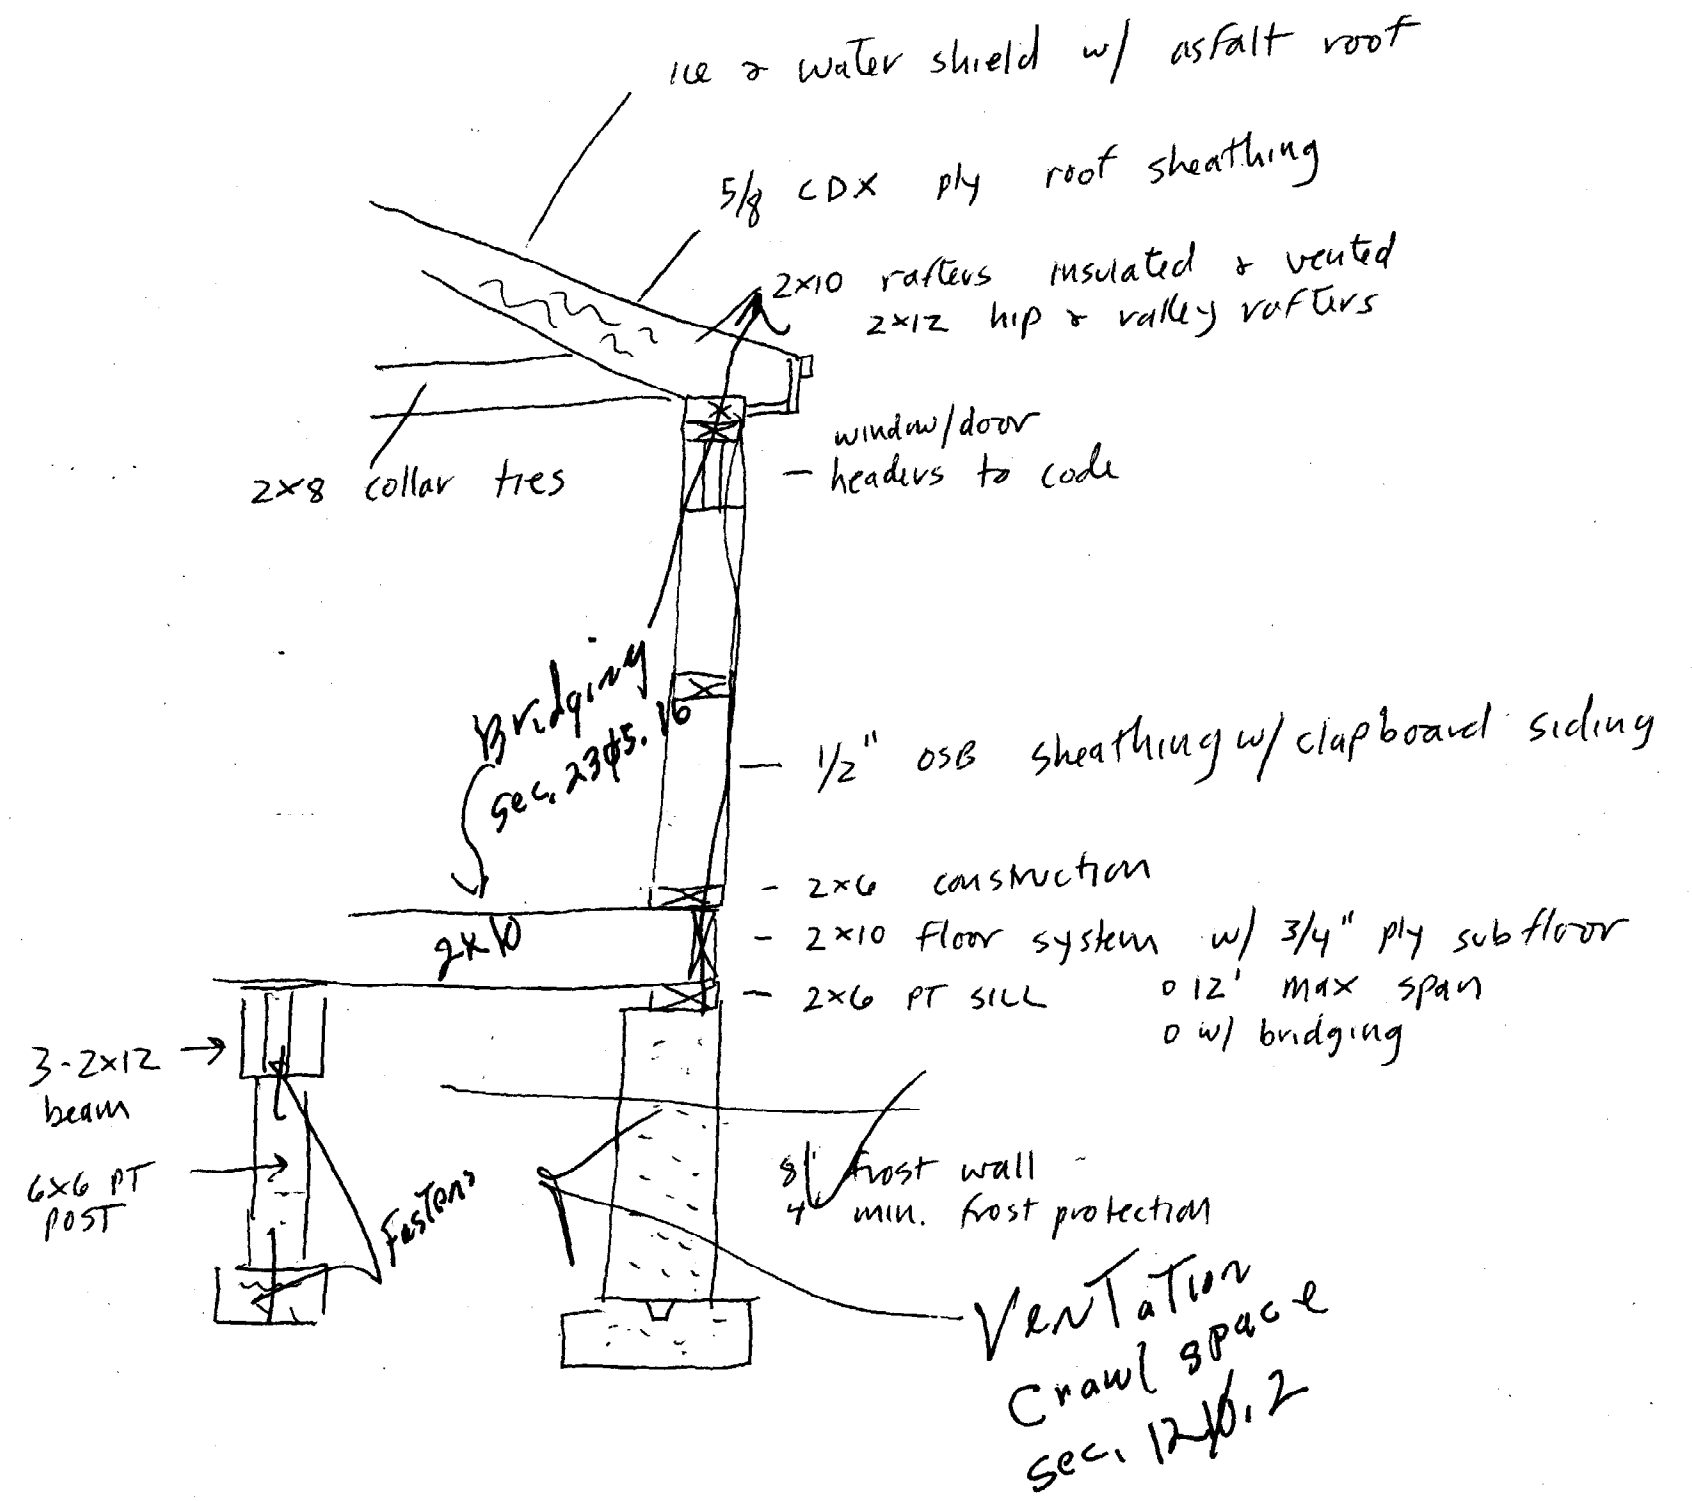 ice & water shield w/ asfalt roof
5/8 CDX ply roof sheathing
2x10 rafters insulated & vented
2x12 hip & valley rafters
window/door
headers to code
2x8 collar ties
Bridging
sec. 2305.16
1/2" OSB sheathing w/ clapboard siding
2x6 construction
2x10 floor system w/ 3/4" ply subfloor
2x10
2x6 PT SILL
o 12' max span
o w/ bridging
3-2x12
beam
6x6 PT
POST
Fastens
8' frost wall
4' min. frost protection
VenTaTion
Crawl space
sec. 1210.2